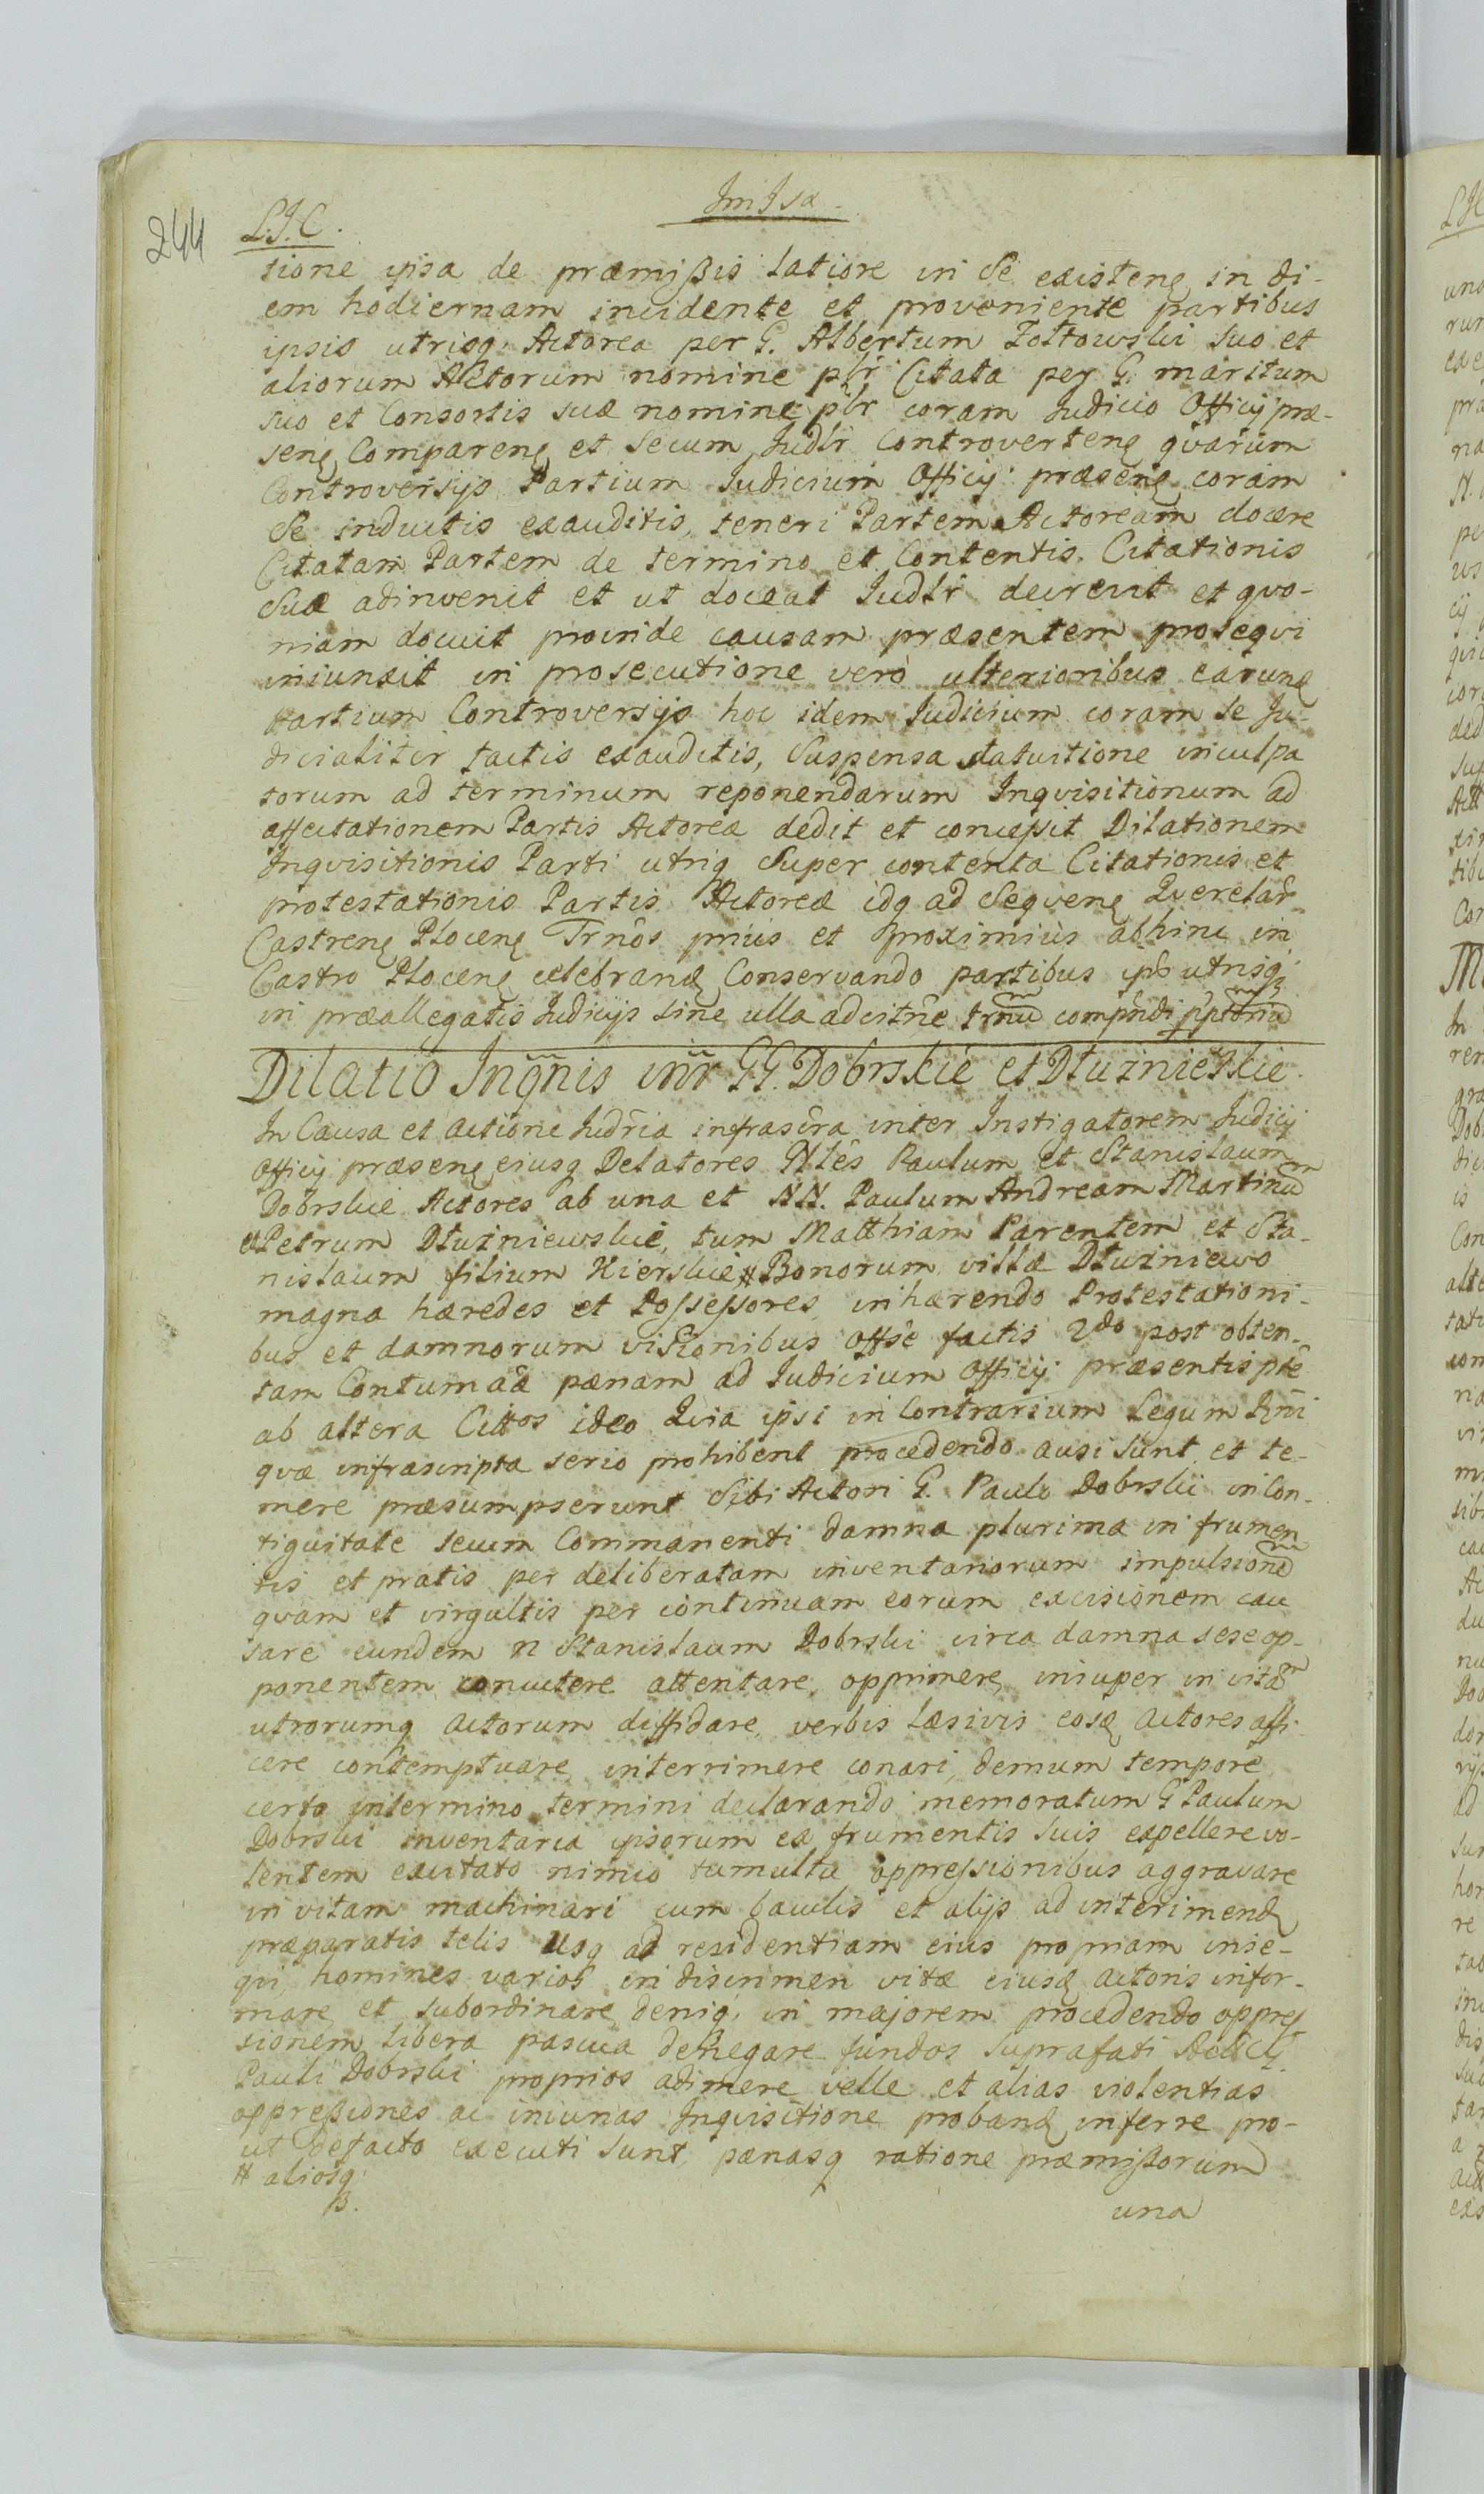 244
L.J.C.
tione ipsa de præmißis latiore in Se existenę in di-
em hodiernam incidente et proveniente partibus
ipsis utrisq; Actorea per G. Albertum Żółtowski Suo et
aliorum Actorum nomine plr Citata per G. maritum
suo et Consortis suæ nomine plr coram Judicio Officij præ-
senę Comparenę et Secum Judlr Controvertenę qvarum
Controversijs Partium Judicium Officij præsenę coram
Se inductis exauditis, teneri Partem Actoream docere
Citatam Partem de termino et Contentis Citationis
Suæ adinvenit et ut doceat Judlr decrevit et qvo-
niam docuit proinde causam præsentem proseqvi
iniunxit in prosecutione verò ulterioribus earunę
Partium Controversijs hoc idem Judicium coram Se Ju-
dicialiter factis exauditis, Suspensa statuitione inculpa
torum ad terminum reponendarum Inqvisitionum ad
affectationem Partis Actoreæ dedit et conceßit Dilationem
Inqvisitionis Parti utriq Super contenta Citationis et
protestationis Partis Actoreæ idq ad Seqvenę Qverelar
Castrenę Plocenę Trnôs prius et proximius abhinc in
Castro Plocenę celebranę Conservando partibus ipŝ utrisq;
in præallegatis Judicijs sine ulla adcitñe trñu compñdi pptoriũ
Dilatio Inqñis inr̃ GG. Dobrskie et Dłużniewskie.
In Causa et actione Judr̃ia infrascr̃a inter Instigatorem Judicij
Officij præsenę eiusq Delatores Nlês Paulum et Stanislaum
Dobrskie Actores ab una et NN. Paulum Andream Martinũ
et Petrum Dłużniewskie, tum Matthiam Parentem et Sta-
nislaum filium Kierskie # Bonorum villæ Dłużniewo
magna hæredes et Poſseſsores inhærendo Protestationi-
bus et damnorum visionibus offŝe factis 2do post obten-
tam Contumâæ pænam ad Judicium Officij præsentis ptê
ab altera Cittos ideo Quia ipsi in Contrarium Legum Rñi
qvæ infrascripta serio prohibent procedendo ausi sunt et te-
mere præsumpserunt Sibi Actori G. Paulo Dobrski in Con-
tiguitate Secum Commanenti damna plurima in frumen
tis et pratis per deliberatam inventariorum impulsionẽ
qvam et virgultis per continuam eorum excisionem cau
sare eundem N Stanislaum Dobrski circa damna sese op-
ponentem concutere attentare, opprimere, insuper in vitã
utrorumq Actorum diffidare, verbis læsivis eosq Actores affi-
cere contemptuare, interimere conari, demum tempore
certo in termino termini declarando memoratum G Paulum
Dobrski inventaria ipsorum ex frumentis suis expellere vo-
lentem excitato nimio tumultu oppreſsionibus aggravare
in vitam machinari cum baculis et alijs ad interimenę
præparatis telis usq ad residentiam eius propriam inse-
qui, homines varios in discrimen vitæ eiusq Actoris infor-
mare et subordinare deniq, in majorem procedendo oppreſ
sionem libera pascua denegare fundos Suprafati
Pauli Dobrski proprios adimere velle et alias violentias
oppreßiones ac iniurias Inqvisitione probanę inferre pro-
ut de facto executi sunt, pænasq ratione præmißorum
# aliosq;
una